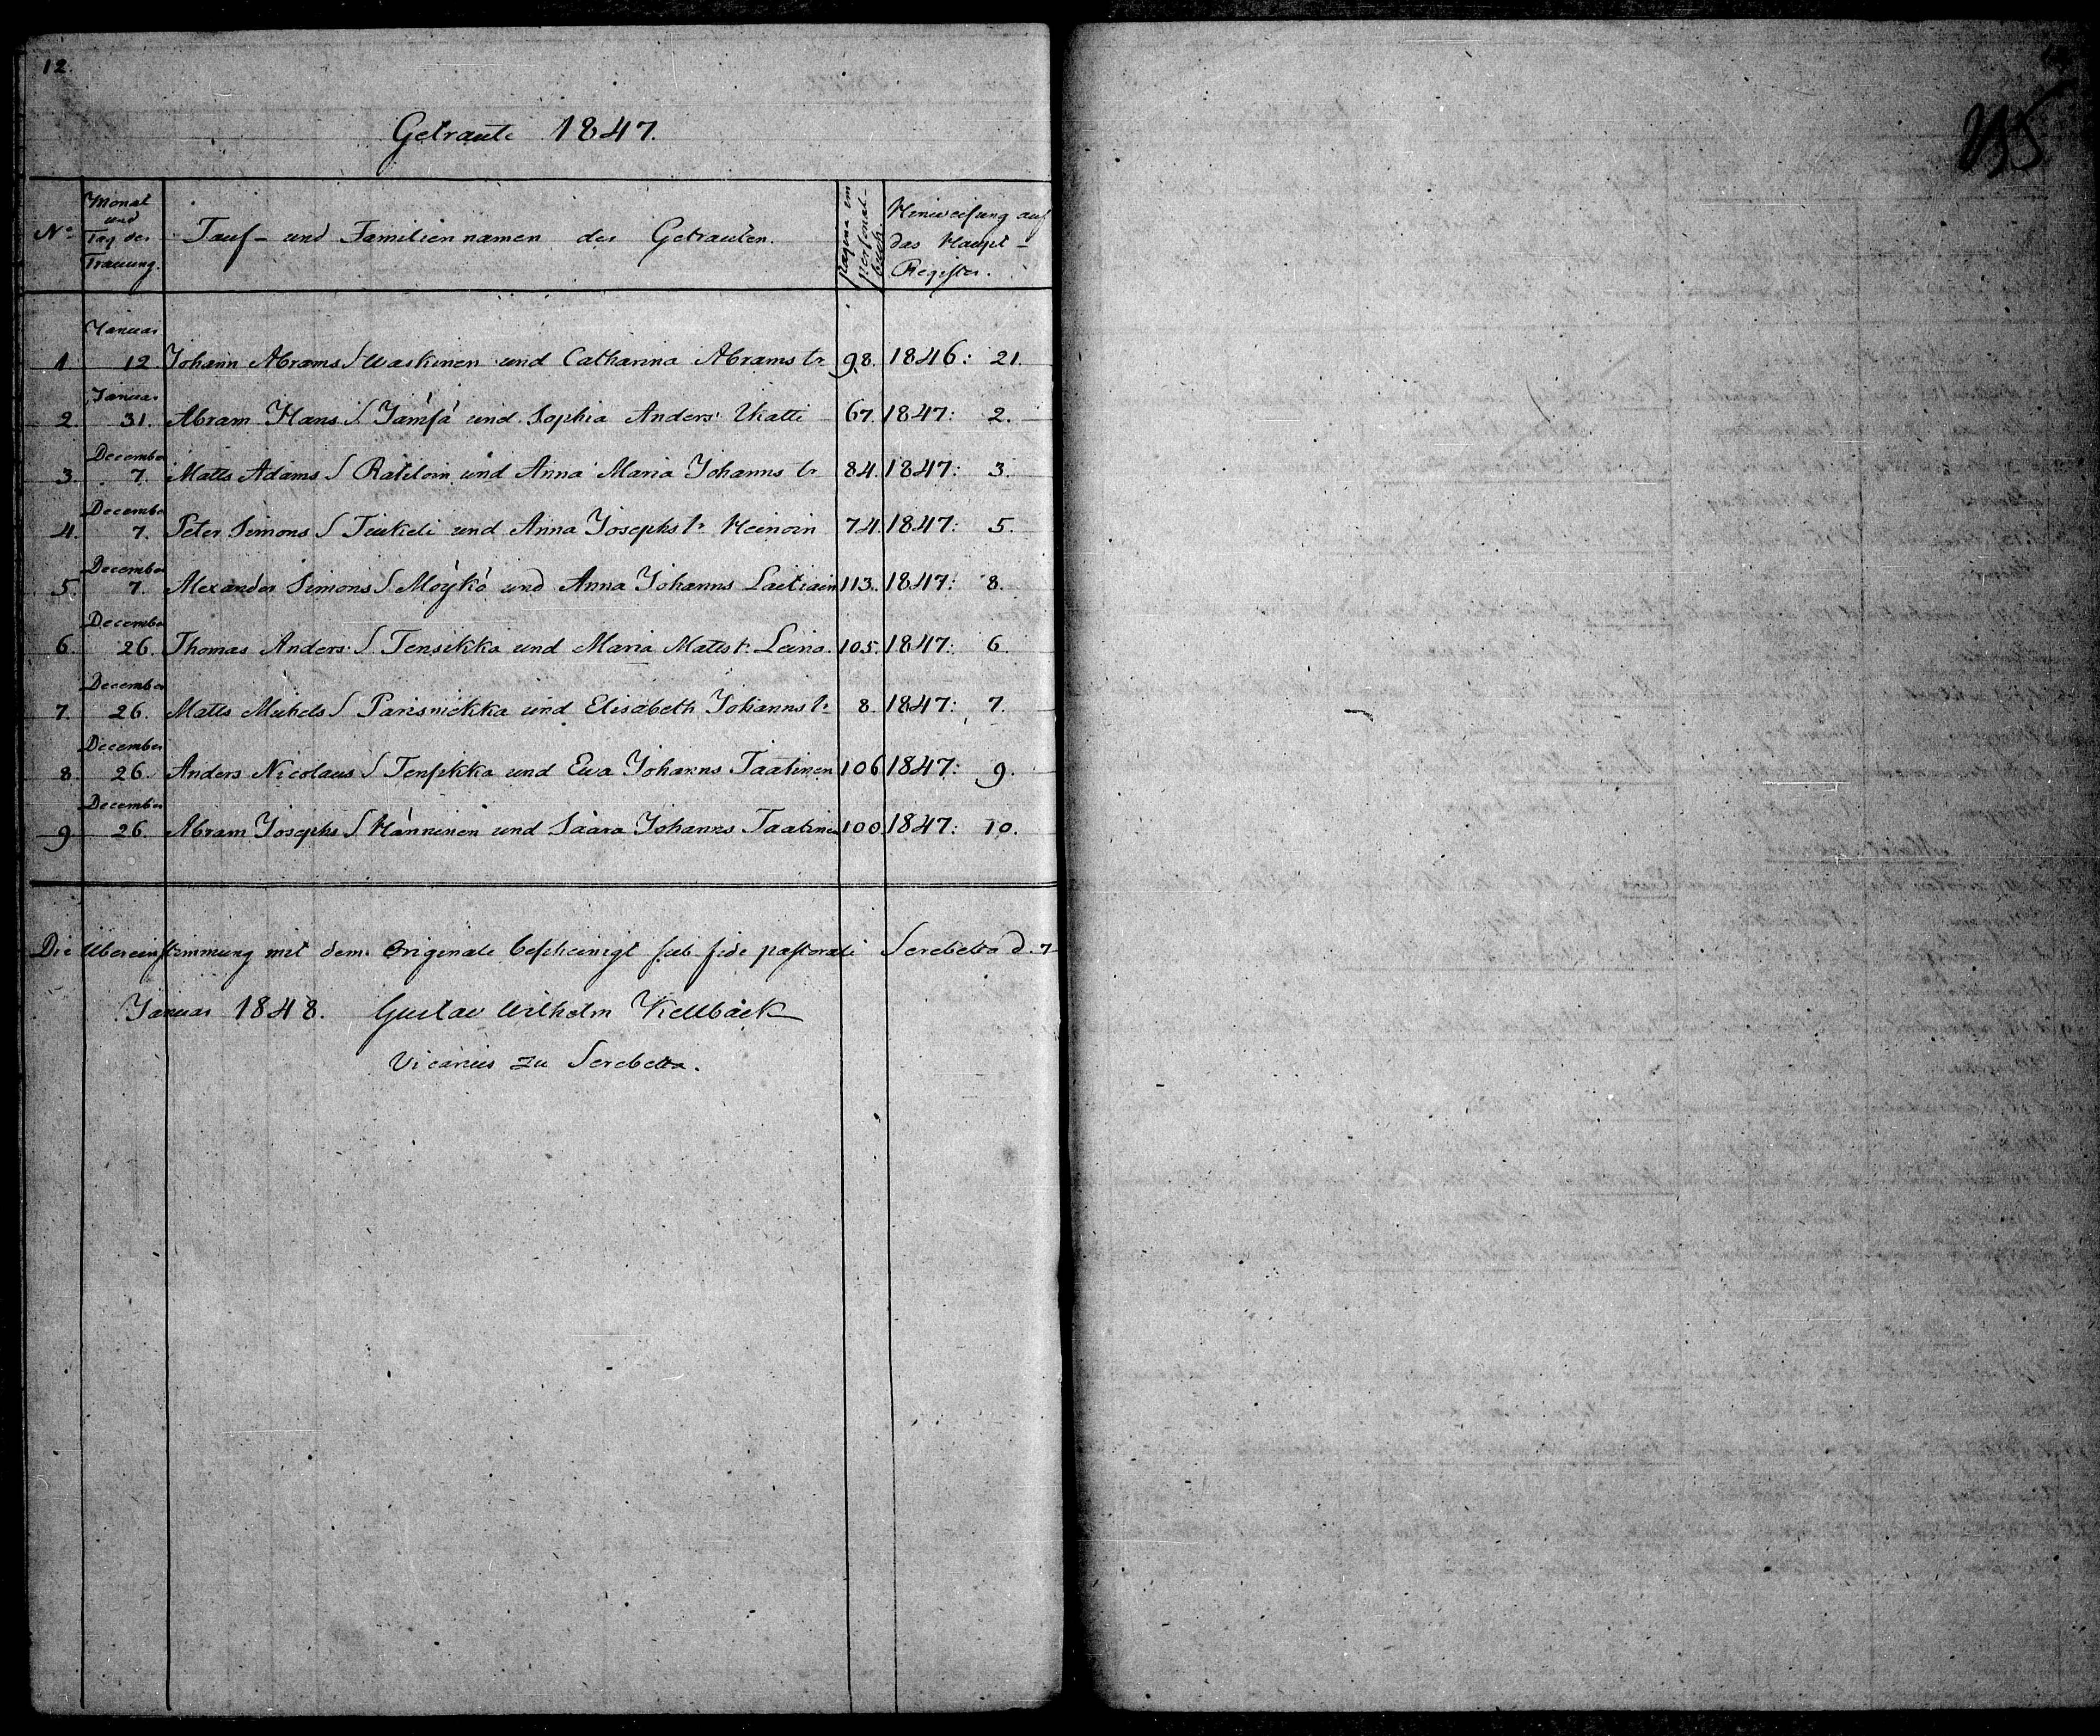 12.
Getraute 1847.
No
Monat
und
Tag der
Trauung.
Tauf- und Familiennamen der Getrauten.
pagina im
personal-
buch.
Hinweisung auf
das Haupt-
Register.
Januar
1. 12. Johann Abrams S Waskinen und Catharina Abrams tr 98. 1846: 21.
Januar
2. 31. Abram Hans S Jämsä und Sophia Anders Ukatti 67. 1847: 2.
December
3. 7. Matts Adams S Ratiloin und Anna Maria Johanns tr 84. 1847: 3.
December
4. 7. Peter Simons S Tiukeli und Anna Josephs tr Heinoin 74. 1847: 5.
December
5. 7. Alexander Simons S Möykö und Anna Johanns Laitiain 113. 1847: 8.
December
6. 26. Thomas Anders S Tensikka und Maria Matts tr. Leino. 105. 1847: 6.
December
7. 26. Matts Michels S Parisniekka und Elisabeth Johanns tr 8. 1847: 7.
December
8. 26. Anders Nicolaus S Tensikka und Ewa Johanns Taatinen 106 1847: 9.
December
9. 26. Abram Josephs S Hänninen und Saara Johanns Taatinen 100. 1847: 10.
Die Übereinstimmung mit dem Originale bescheinigt sub fide pastorali Serebetta d. 7
Januar 1848. Gustav Wilhelm Kellbäck
Vicarius zu Serebetta.